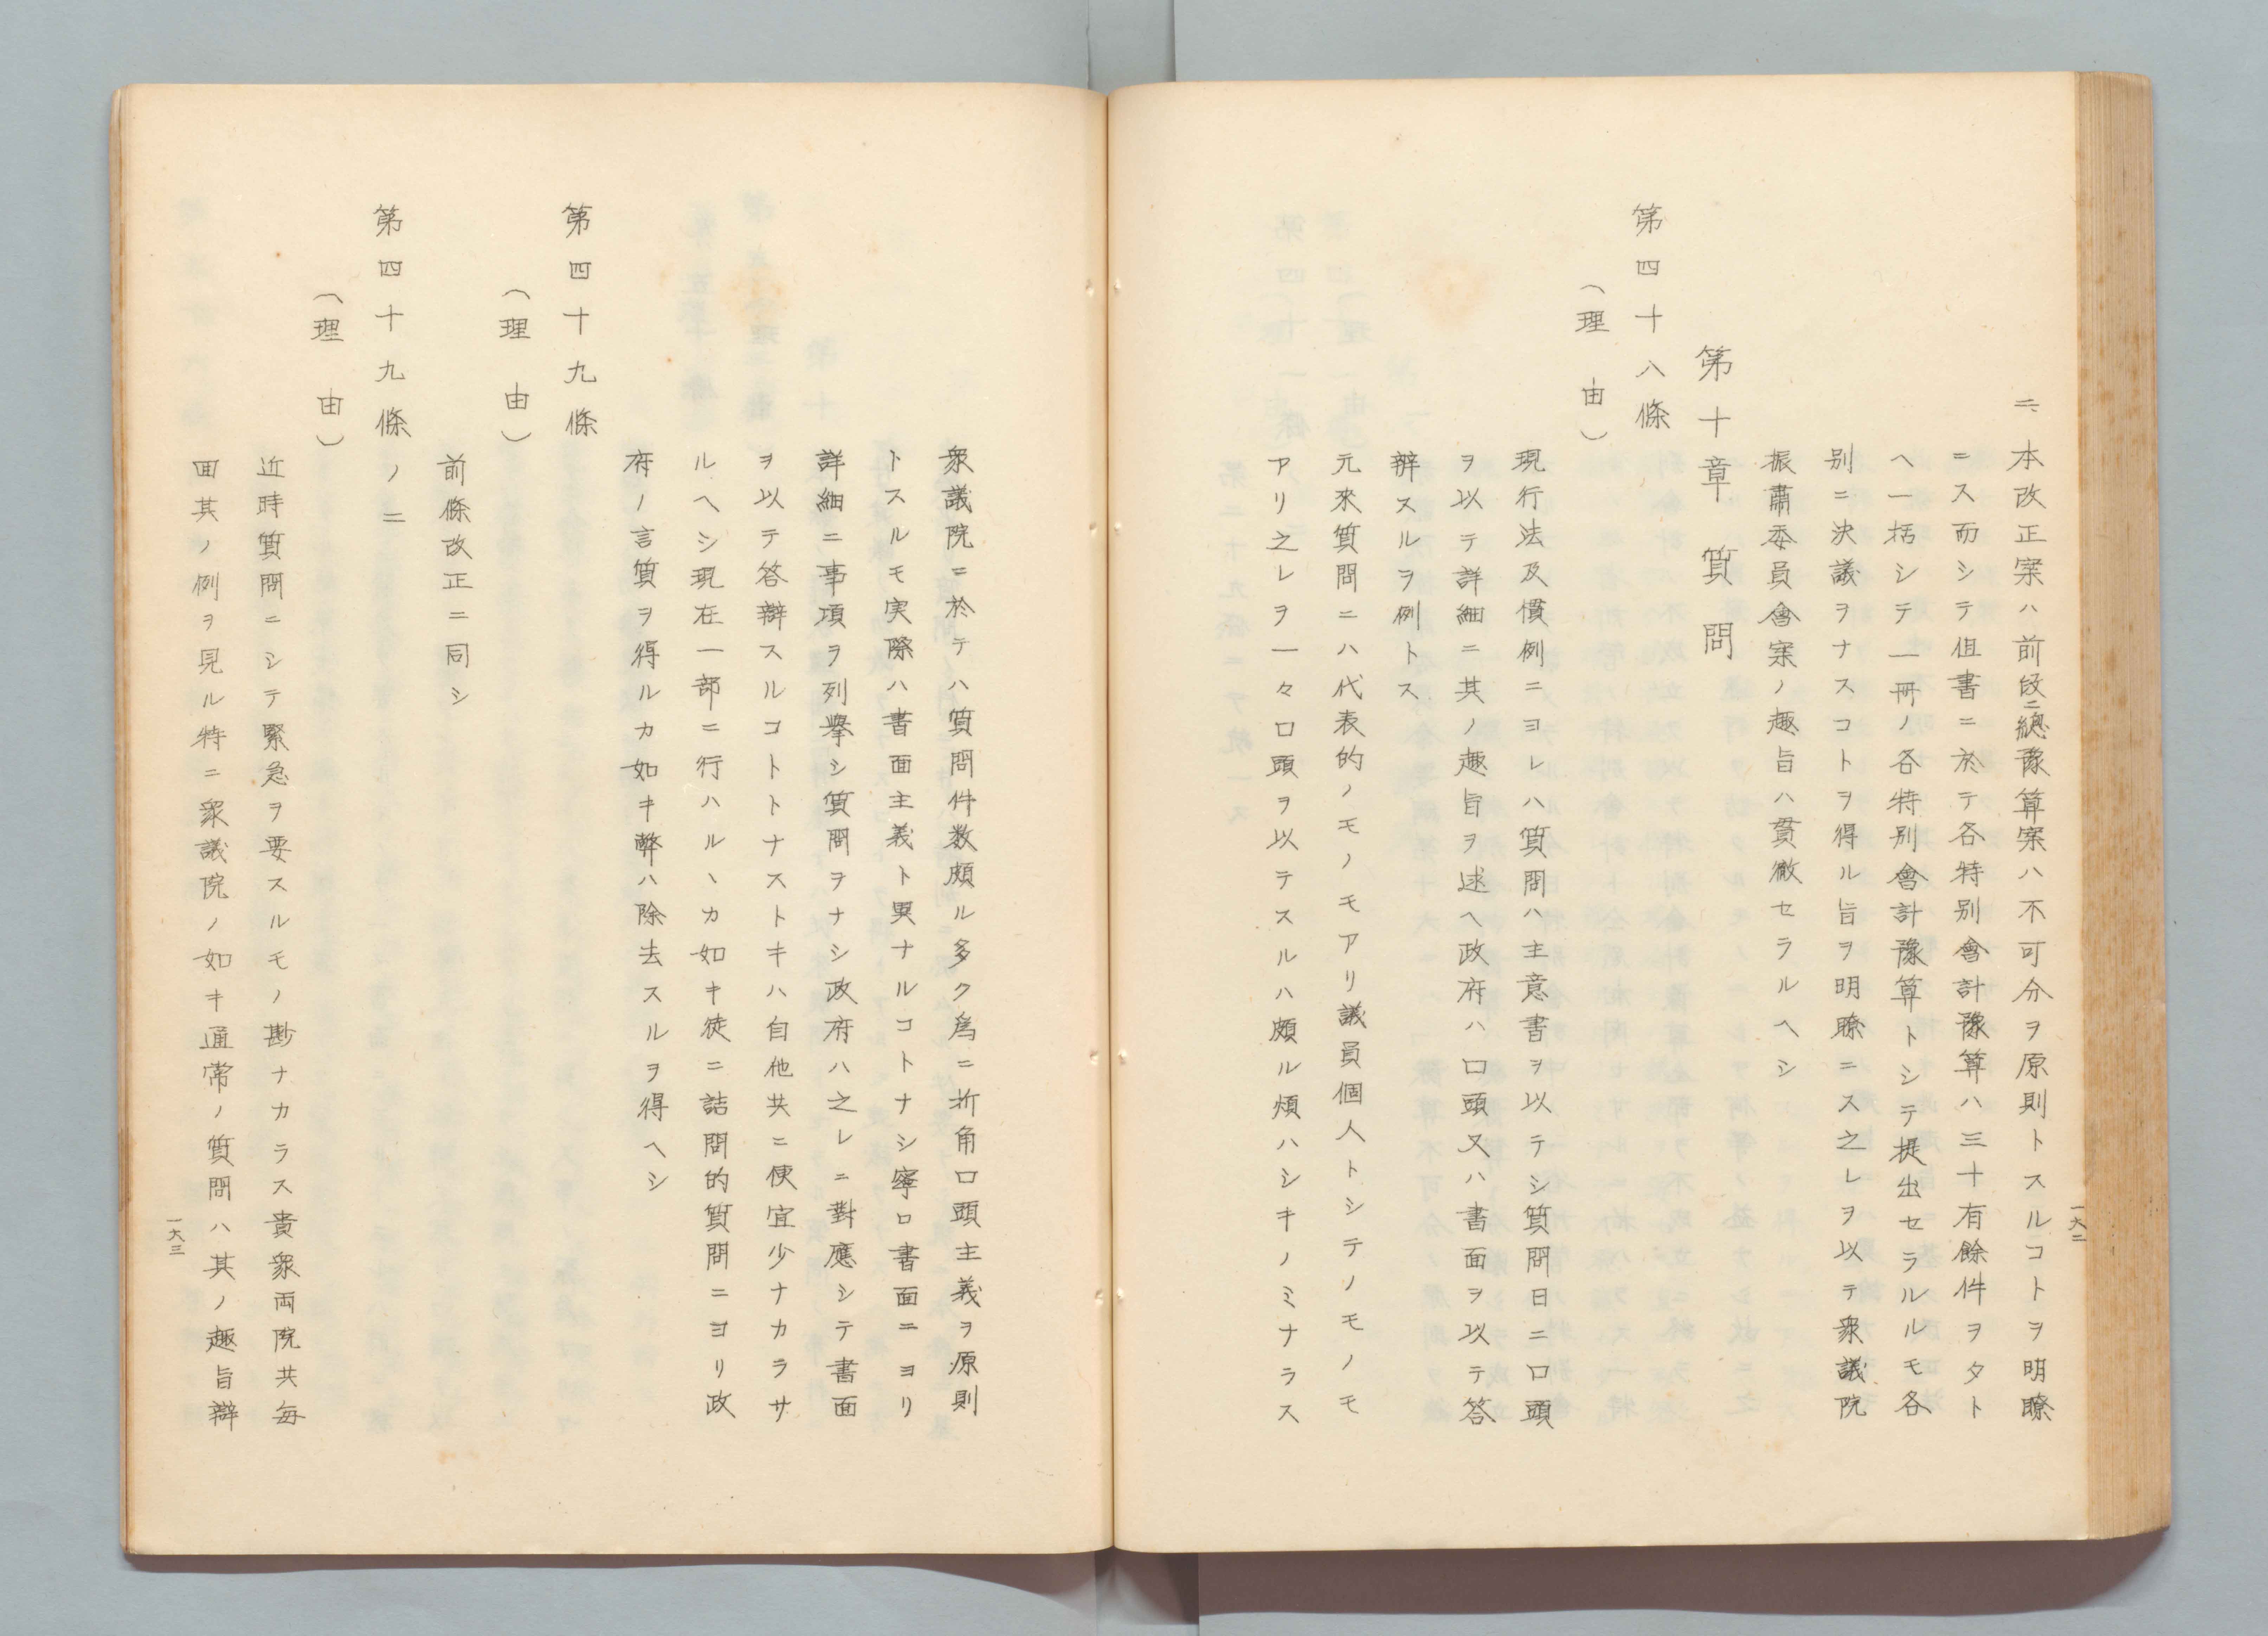 二、本改正案ハ前段ニ總豫算案ハ不可分ヲ原則トスルコトヲ明瞭
ニス而シテ但書ニ於テ各特別會計豫算ハ三十有餘件ヲタト
ヘ一括シテ一冊ノ各特別會計豫算トシテ提出セラルルモ各
別ニ決議ヲナスコトヲ得ル旨ヲ明瞭ニス之レヲ以テ衆議院
振肅委員會案ノ趣旨ハ貫徹セラルヘシ
第十章 質問
第四十八條
(理由)
現行法及慣例ニヨレハ質問ハ主意書ヲ以テシ質問日ニ口頭
ヲ以テ詳細ニ其ノ趣旨ヲ述ヘ政府ハ口頭又ハ書面ヲ以テ答
辨スルヲ例トス
元來質問ニハ代表的ノモノモアリ議員個人トシテノモノモ
アリ之レヲ一々口頭ヲ以テスルハ頗ル煩ハシキノミナラス
一六二
衆議院ニ於テハ質問件数頗ル多ク為ニ折角口頭主義ヲ原則
トスルモ実際ハ書面主義ト異ナルコトナシ寧ロ書面ニヨリ
詳細ニ事項ヲ列擧シ質問ヲナシ政府ハ之レニ對應シテ書面
ヲ以テ答辯スルコトトナストキハ自他共ニ便宜少ナカラサ
ルヘシ現在一部ニ行ハルヽカ如キ徒ニ詰問的質問ニヨリ政
府ノ言質ヲ得ルカ如キ弊ハ除去スルヲ得ヘシ
第四十九條
(理由)
前條改正ニ同シ
第四十九條ノ二
(理由)
近時質問ニシテ緊急ヲ要スルモノ尠ナカラス貴衆両院共毎
囬其ノ例ヲ見ル特ニ衆議院ノ如キ通常ノ質問ハ其ノ趣旨辯
一六三